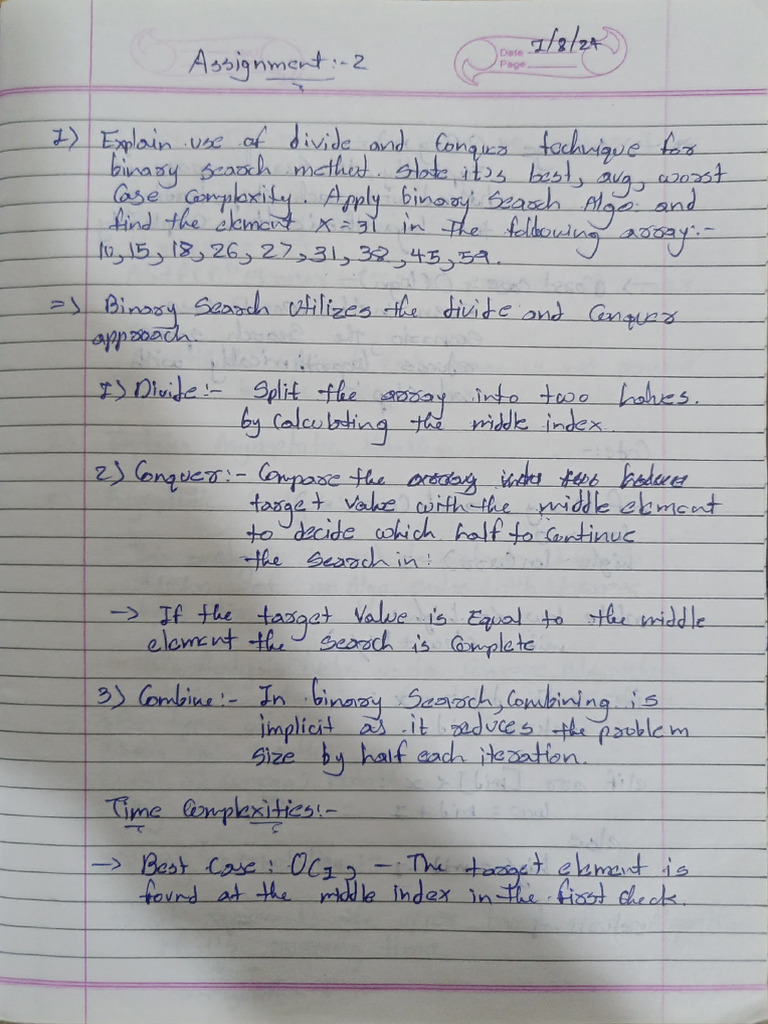 Assignment :- 2
Date 1/8/24
Page
1) Explain use of divide and Conquer technique for
binary search method. State it's best, avg, worst
Case Complexity. Apply binary Search Algo. and
find the element x = 31 in the following array:-
10, 15, 18, 26, 27, 31, 38, 45, 59.
=> Binary Search utilizes the divide and Conquer
approach.
1) Divide :- Split the array into two halves.
by calculating the middle index.
2) Conquer :- Compare the
target value with the middle element
to decide which half to continue
the search in:
-> If the target value is Equal to the middle
element the search is Complete
3) Combine :- In binary Search, Combining is
implicit as it reduces the problem
size by half each iteration.
Time Complexities :-
-> Best Case : O(1) - The target element is
found at the middle index in the first check.